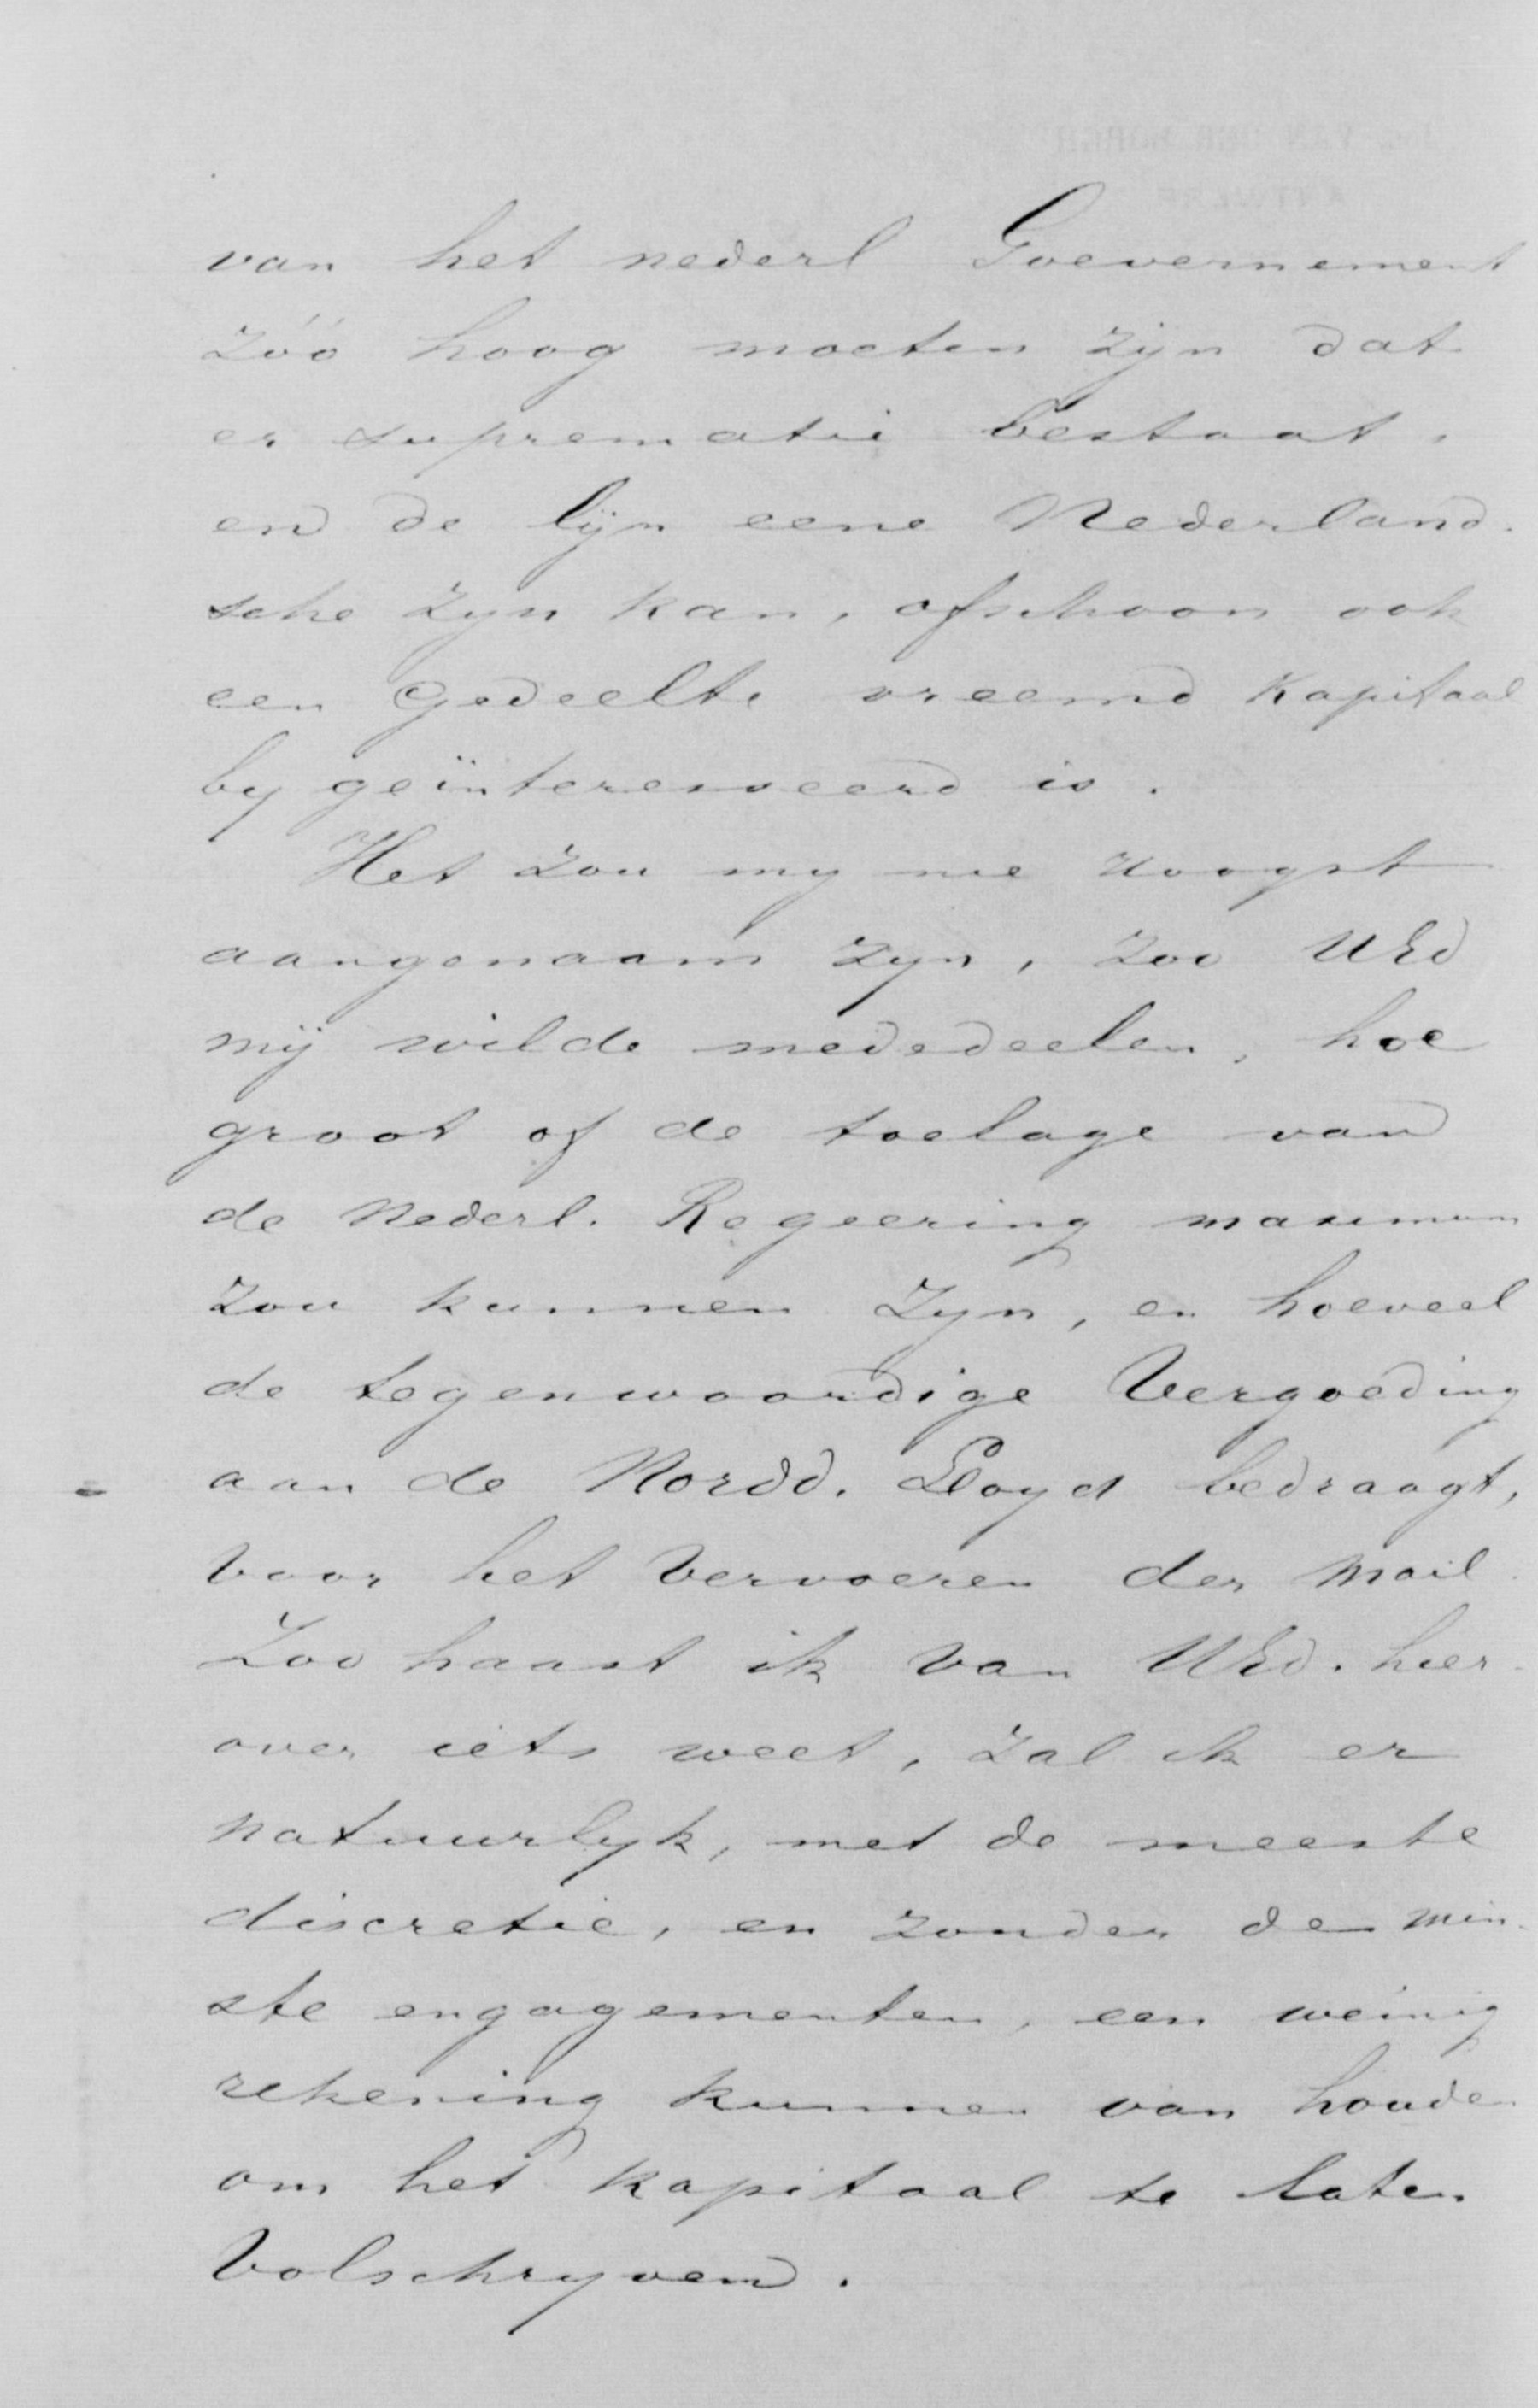 van het nederl Goevernement
zóó hoog moeten zijn dat
er suprematie bestaat,
en de lijn eene Nederland-
sche zyn kan, ofschoon ook
een gedeelte vreemd Kapitaal
by geïnteresseerd is.
Het zou my nu hoogst
aangenaam zyn, zoo UEd
mij wilde mededeelen, hoe
groot of de toelage van
de Nederl. Regeering maximum
zou kunnen zyn, en hoeveel
de tegenwoordige Vergoeding
aan de Nordd. Lloyd bedraagt,
voor het vervoeren der Mail.
Zoo haast ik van UEd. hier-
over iets weet, zal ik er
natuurlyk, met de meeste
discretie, en zonder de min-
ste engagementen, een weinig
rekening kunnen van houden
om het Kapitaal te laten
Volschryven.